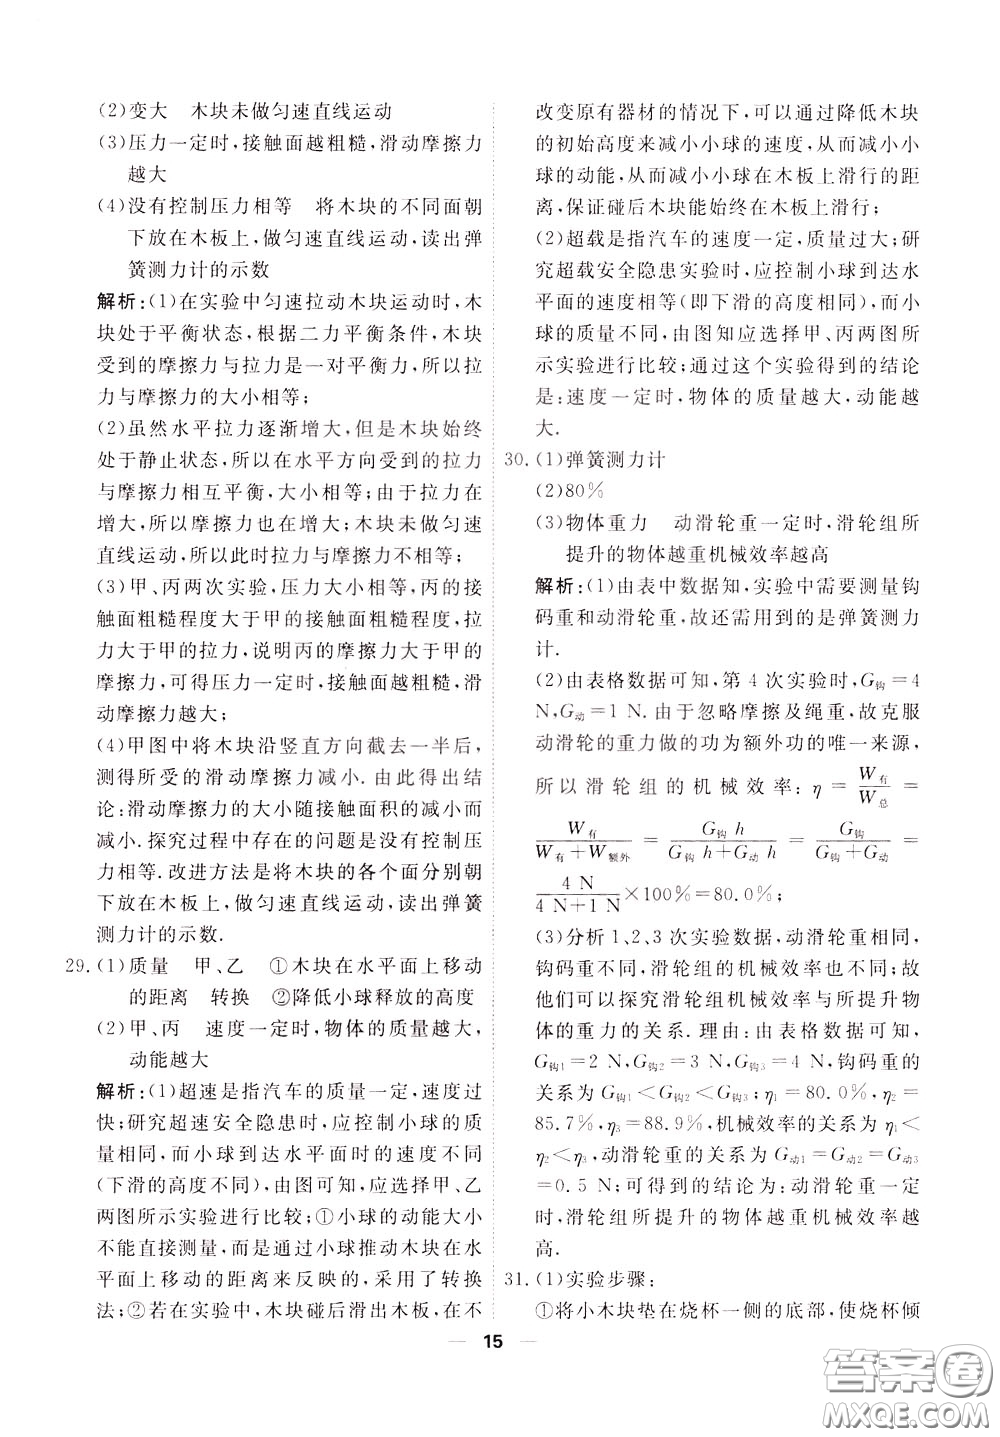 (2)变大　木块未做匀速直线运动
(3)压力一定时,接触面越粗糙,滑动摩擦力
越大
(4)没有控制压力相等　将木块的不同面朝
下放在木板上,做匀速直线运动,读出弹
簧测力计的示数
解析:(1)在实验中匀速拉动木块运动时,木
块处于平衡状态,根据二力平衡条件,木块
受到的摩擦力与拉力是一对平衡力,所以拉
力与摩擦力的大小相等;
(2)虽然水平拉力逐渐增大,但是木块始终
处于静止状态,所以在水平方向受到的拉力
与摩擦力相互平衡,大小相等;由于拉力在
增大,所以摩擦力也在增大;木块未做匀速
直线运动,所以此时拉力与摩擦力不相等;
(3)甲、丙两次实验,压力大小相等,丙的接
触面粗糙程度大于甲的接触面粗糙程度,拉
力大于甲的拉力,说明丙的摩擦力大于甲的
摩擦力,可得压力一定时,接触面越粗糙,滑
动摩擦力越大;
(4)甲图中将木块沿竖直方向截去一半后,
测得所受的滑动摩擦力减小.由此得出结
论:滑动摩擦力的大小随接触面积的减小而
减小.探究过程中存在的问题是没有控制压
力相等.改进方法是将木块的各个面分别朝
下放在木板上,做匀速直线运动,读出弹簧
测力计的示数.
29.(1)质量　甲、乙　①木块在水平面上移动
的距离　转换　②降低小球释放的高度
(2)甲、丙　速度一定时,物体的质量越大,
动能越大
解析:(1)超速是指汽车的质量一定,速度过
快;研究超速安全隐患时,应控制小球的质
量相同,而小球到达水平面时的速度不同
(下滑的高度不同),由图可知,应选择甲、乙
两图所示实验进行比较;①小球的动能大小
不能直接测量,而是通过小球推动木块在水
平面上移动的距离来反映的,采用了转换
法;②若在实验中,木块碰后滑出木板,在不
改变原有器材的情况下,可以通过降低木块
的初始高度来减小小球的速度,从而减小小
球的动能,从而减小小球在木板上滑行的距
离,保证碰后木块能始终在木板上滑行;
(2)超载是指汽车的速度一定,质量过大;研
究超载安全隐患实验时,应控制小球到达水
平面的速度相等(即下滑的高度相同),而小
球的质量不同,由图知应选择甲、丙两图所
示实验进行比较;通过这个实验得到的结论
是:速度一定时,物体的质量越大,动能越
大.
30.(1)弹簧测力计
(2)80%
(3)物体重力　动滑轮重一定时,滑轮组所
提升的物体越重机械效率越高
解析:(1)由表中数据知,实验中需要测量钩
码重和动滑轮重,故还需用到的是弹簧测力
计.
(2)由表格数据可知,第 4 次实验时,G钩=4
N,G动=1 N.由于忽略摩擦及绳重,故克服
动滑轮的重力做的功为额外功的唯一来源,
所以滑轮组的机械效率:η=W有/W总=
W有/(W有+W额外)=G钩 h/(G钩 h+G动 h)=G钩/(G钩+G动)=
4 N/(4 N+1 N)×100%=80.0%;
(3)分析 1、2、3 次实验数据,动滑轮重相同,
钩码重不同,滑轮组的机械效率也不同;故
他们可以探究滑轮组机械效率与所提升物
体的重力的关系.理由:由表格数据可知,
G钩1=2 N,G钩2=3 N,G钩3=4 N,钩码重的
关系为 G钩1<G钩2<G钩3;η1=80.0%,η2=
85.7%,η3=88.9%,机械效率的关系为 η1<
η2<η3,动滑轮重的关系为 G动1=G动2=G动3
=0.5 N;可得到的结论为:动滑轮重一定
时,滑轮组所提升的物体越重机械效率越
高.
31.(1)实验步骤:
①将小木块垫在烧杯一侧的底部,使烧杯倾
15
答案圈
MXQE.COM